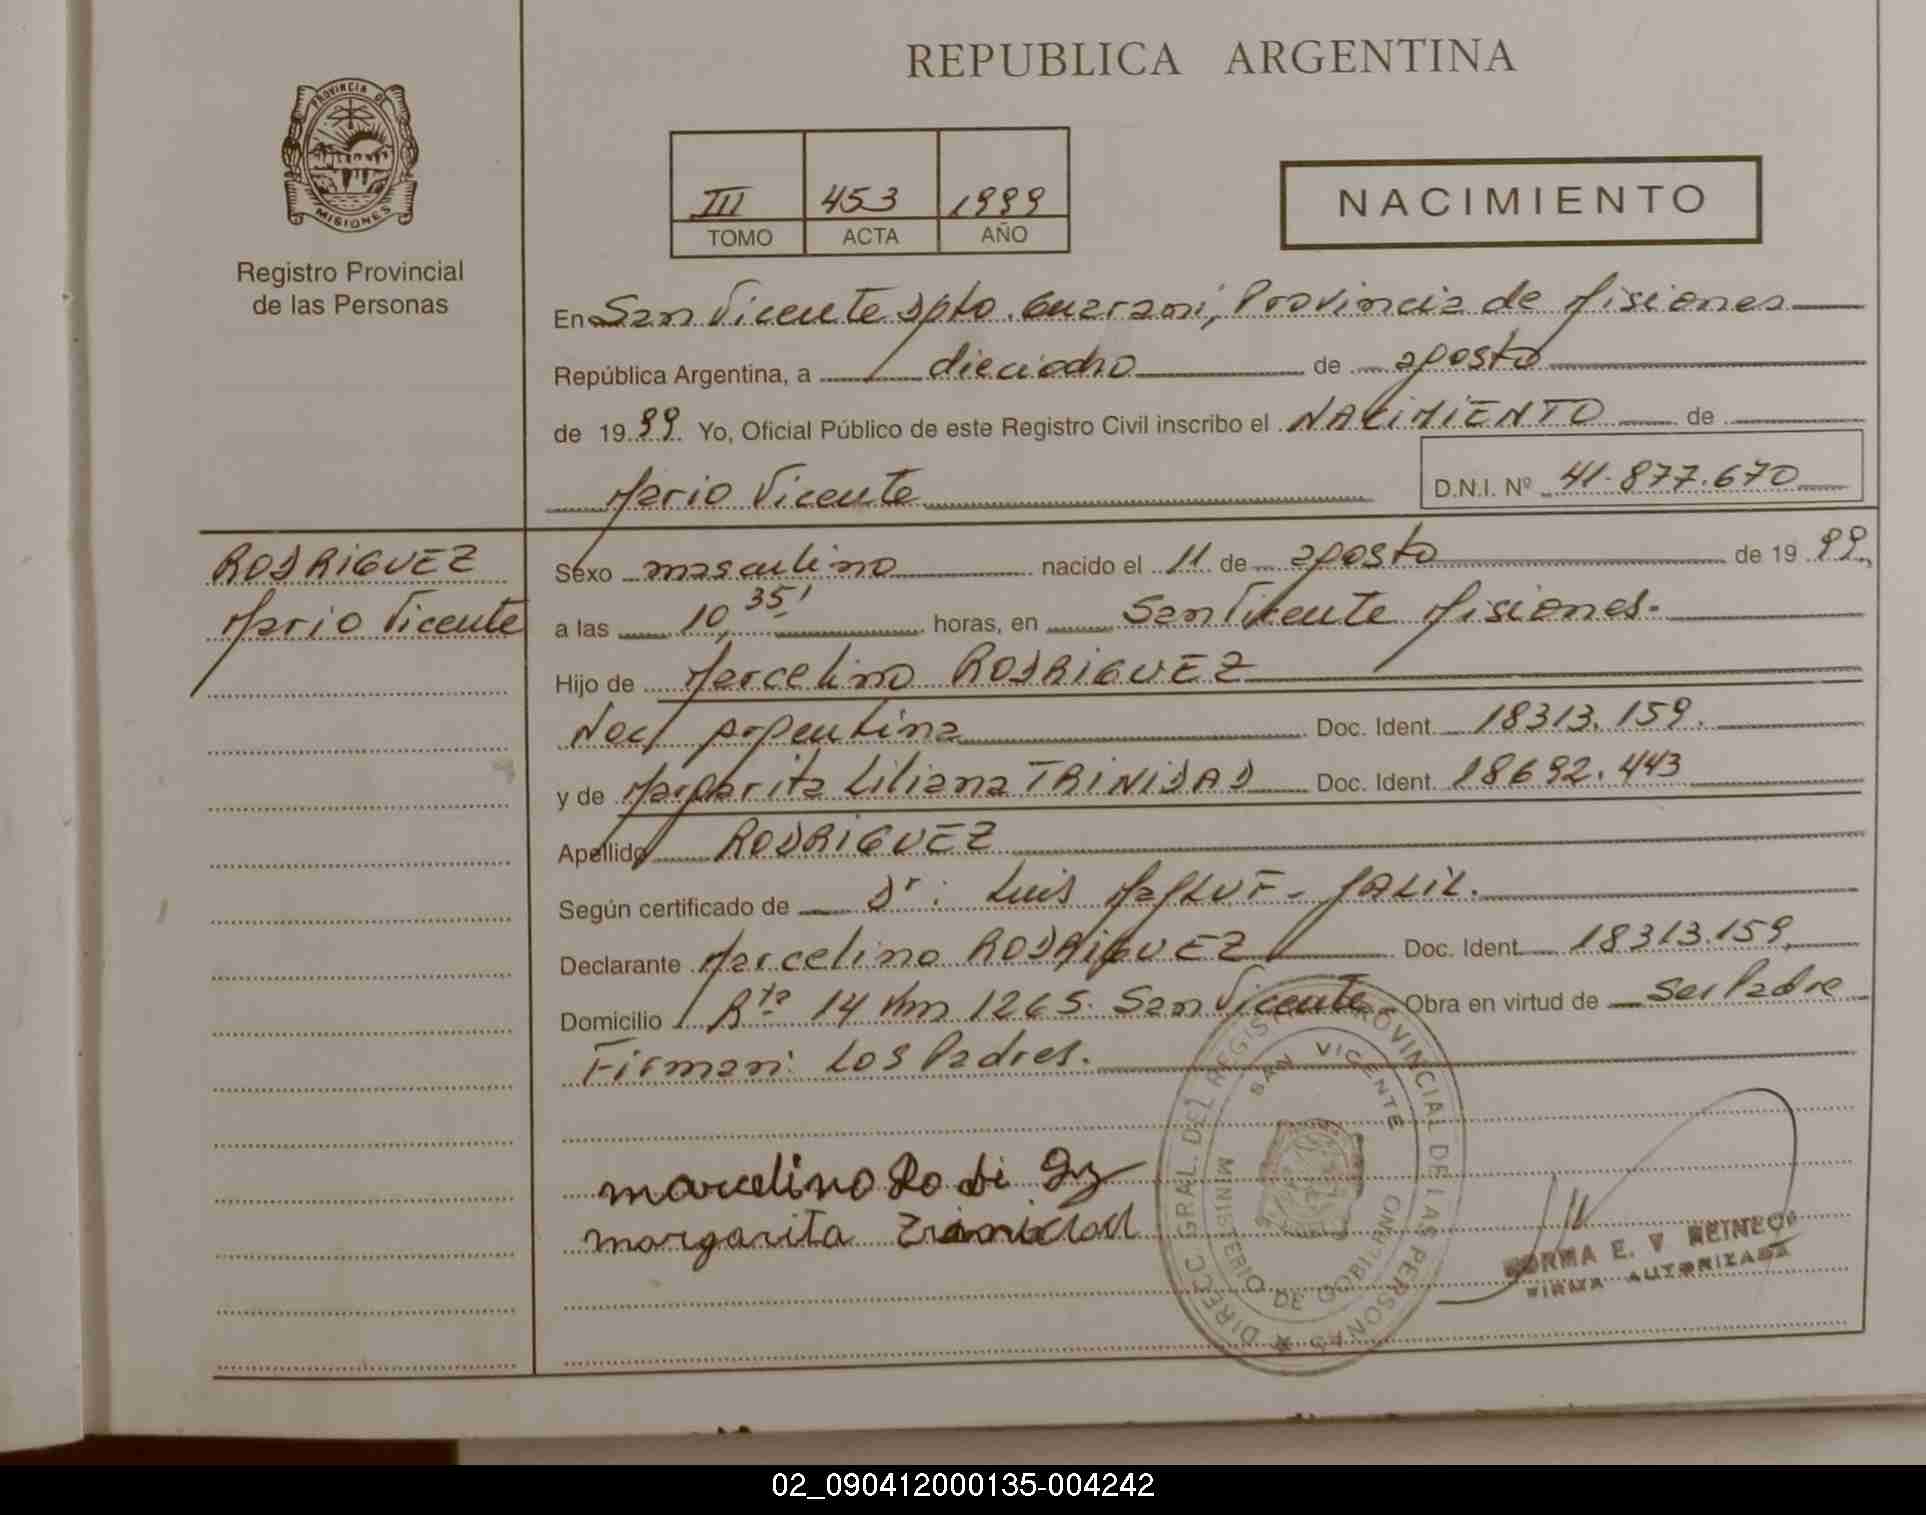 REPUBLICA ARGENTINA
PROVINCIA DE
MISIONES
Registro Provincial
de las Personas
III 453 1999
TOMO ACTA AÑO
NACIMIENTO
En San Vicente Dpto. Guarani, Provincia de Misiones
República Argentina, a dieciocho de agosto
de 1999 Yo, Oficial Público de este Registro Civil inscribo el NACIMIENTO de
Mario Vicente D.N.I. Nº 41.877.670
RODRIGUEZ
Mario Vicente
Sexo masculino nacido el 11 de agosto de 1999,
a las 10,35' horas, en San Vicente Misiones.
Hijo de Marcelino RODRIGUEZ
Nac argentina Doc. Ident. 18313.159.
y de Margarita Liliana TRINIDAD Doc. Ident. 18692.443
Apellido RODRIGUEZ
Según certificado de Dr: Luis MaGLUF - JALIL.
Declarante Marcelino RODRIGUEZ Doc. Ident. 18313.159,
Domicilio Rta 14 Km 1265. San Vicente Obra en virtud de Ser Padre
Firman: Los Padres.
marcelino Ro di gz
margarita Trinidad
DIRECC GRAL. DEL REGISTRO PROVINCIAL DE LAS PERSONAS
SAN VICENTE
MINISTERIO DE GOBIERNO
NORMA E. V. REINECK
FIRMA AUTORIZADA
02_090412000135-004242